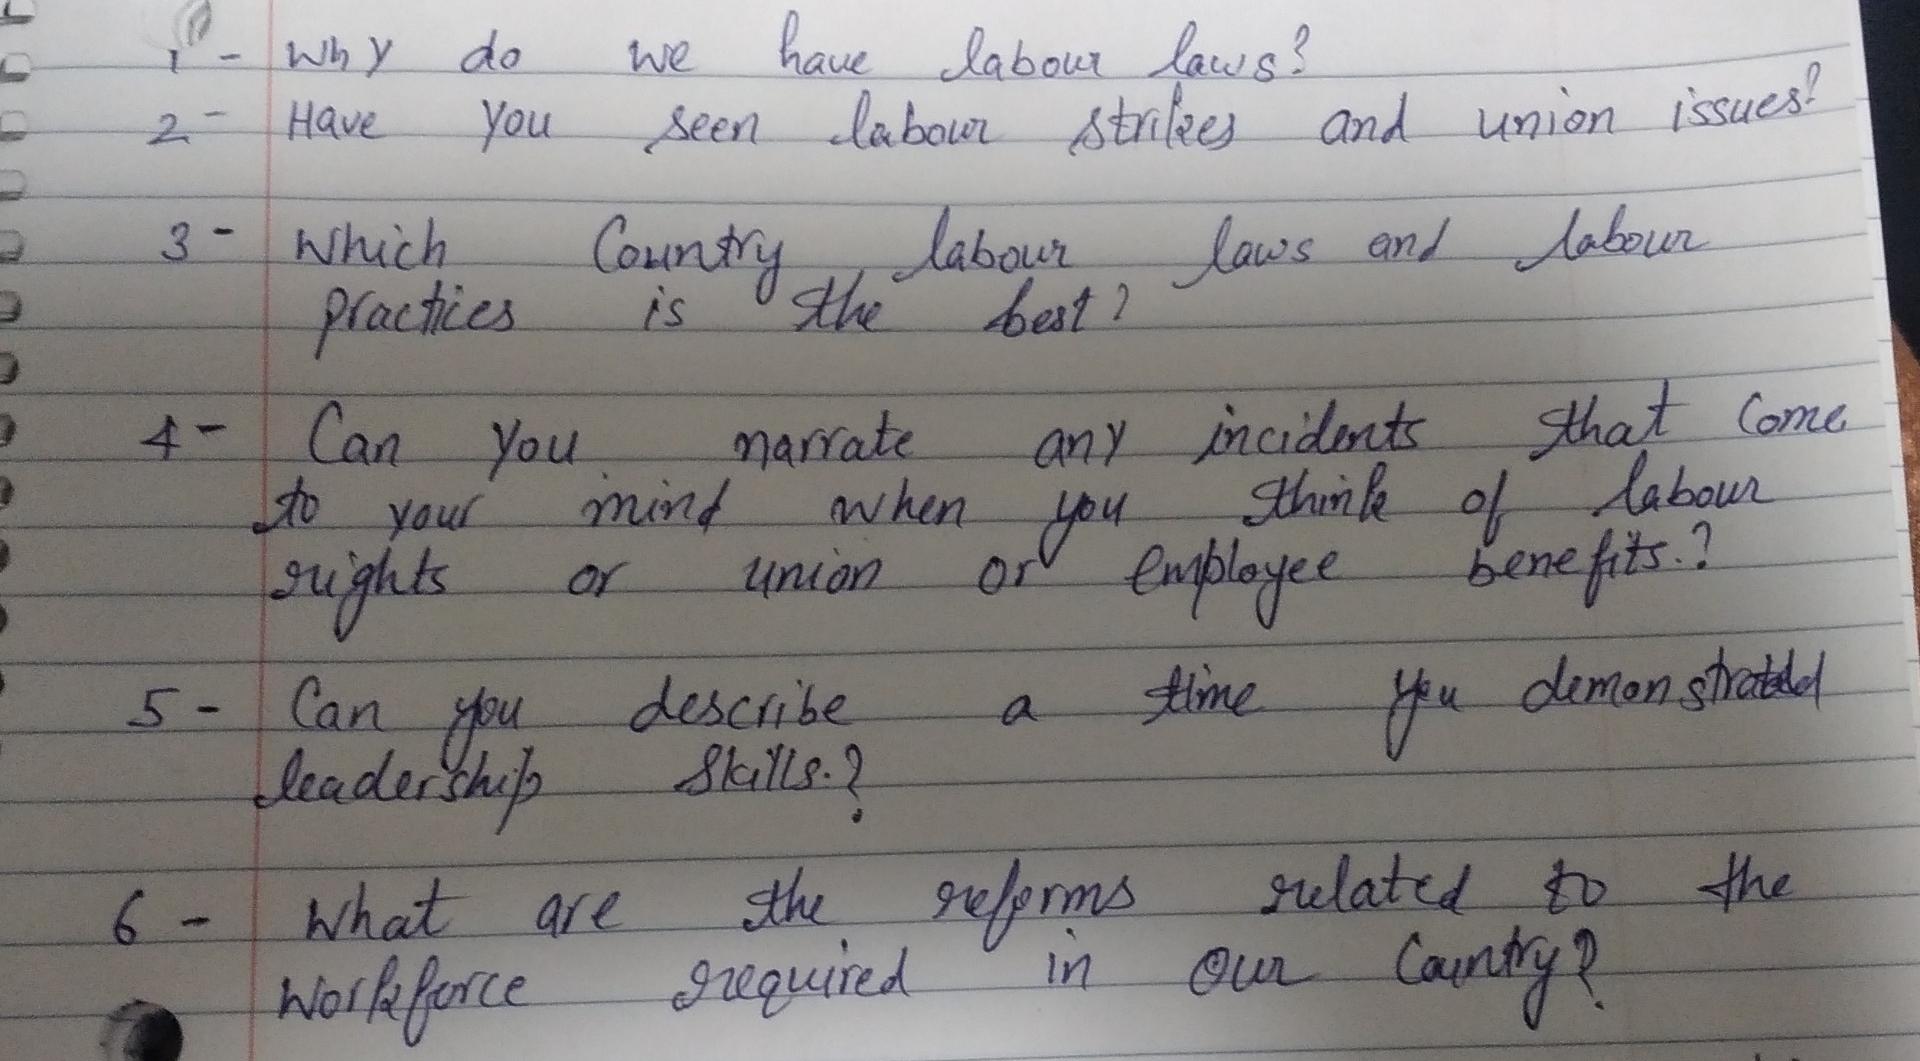 1- Why do we have labour laws?
2- Have you seen labour strikes and union issues?
3- Which Country labour laws and labour
practices is the best?
4- Can you narrate any incidents that come
to your mind when you think of labour
rights or union or employee benefits.?
5- Can you describe a time you demonstrated
leadership skills.?
6- What are the reforms related to the
workforce required in our Country?